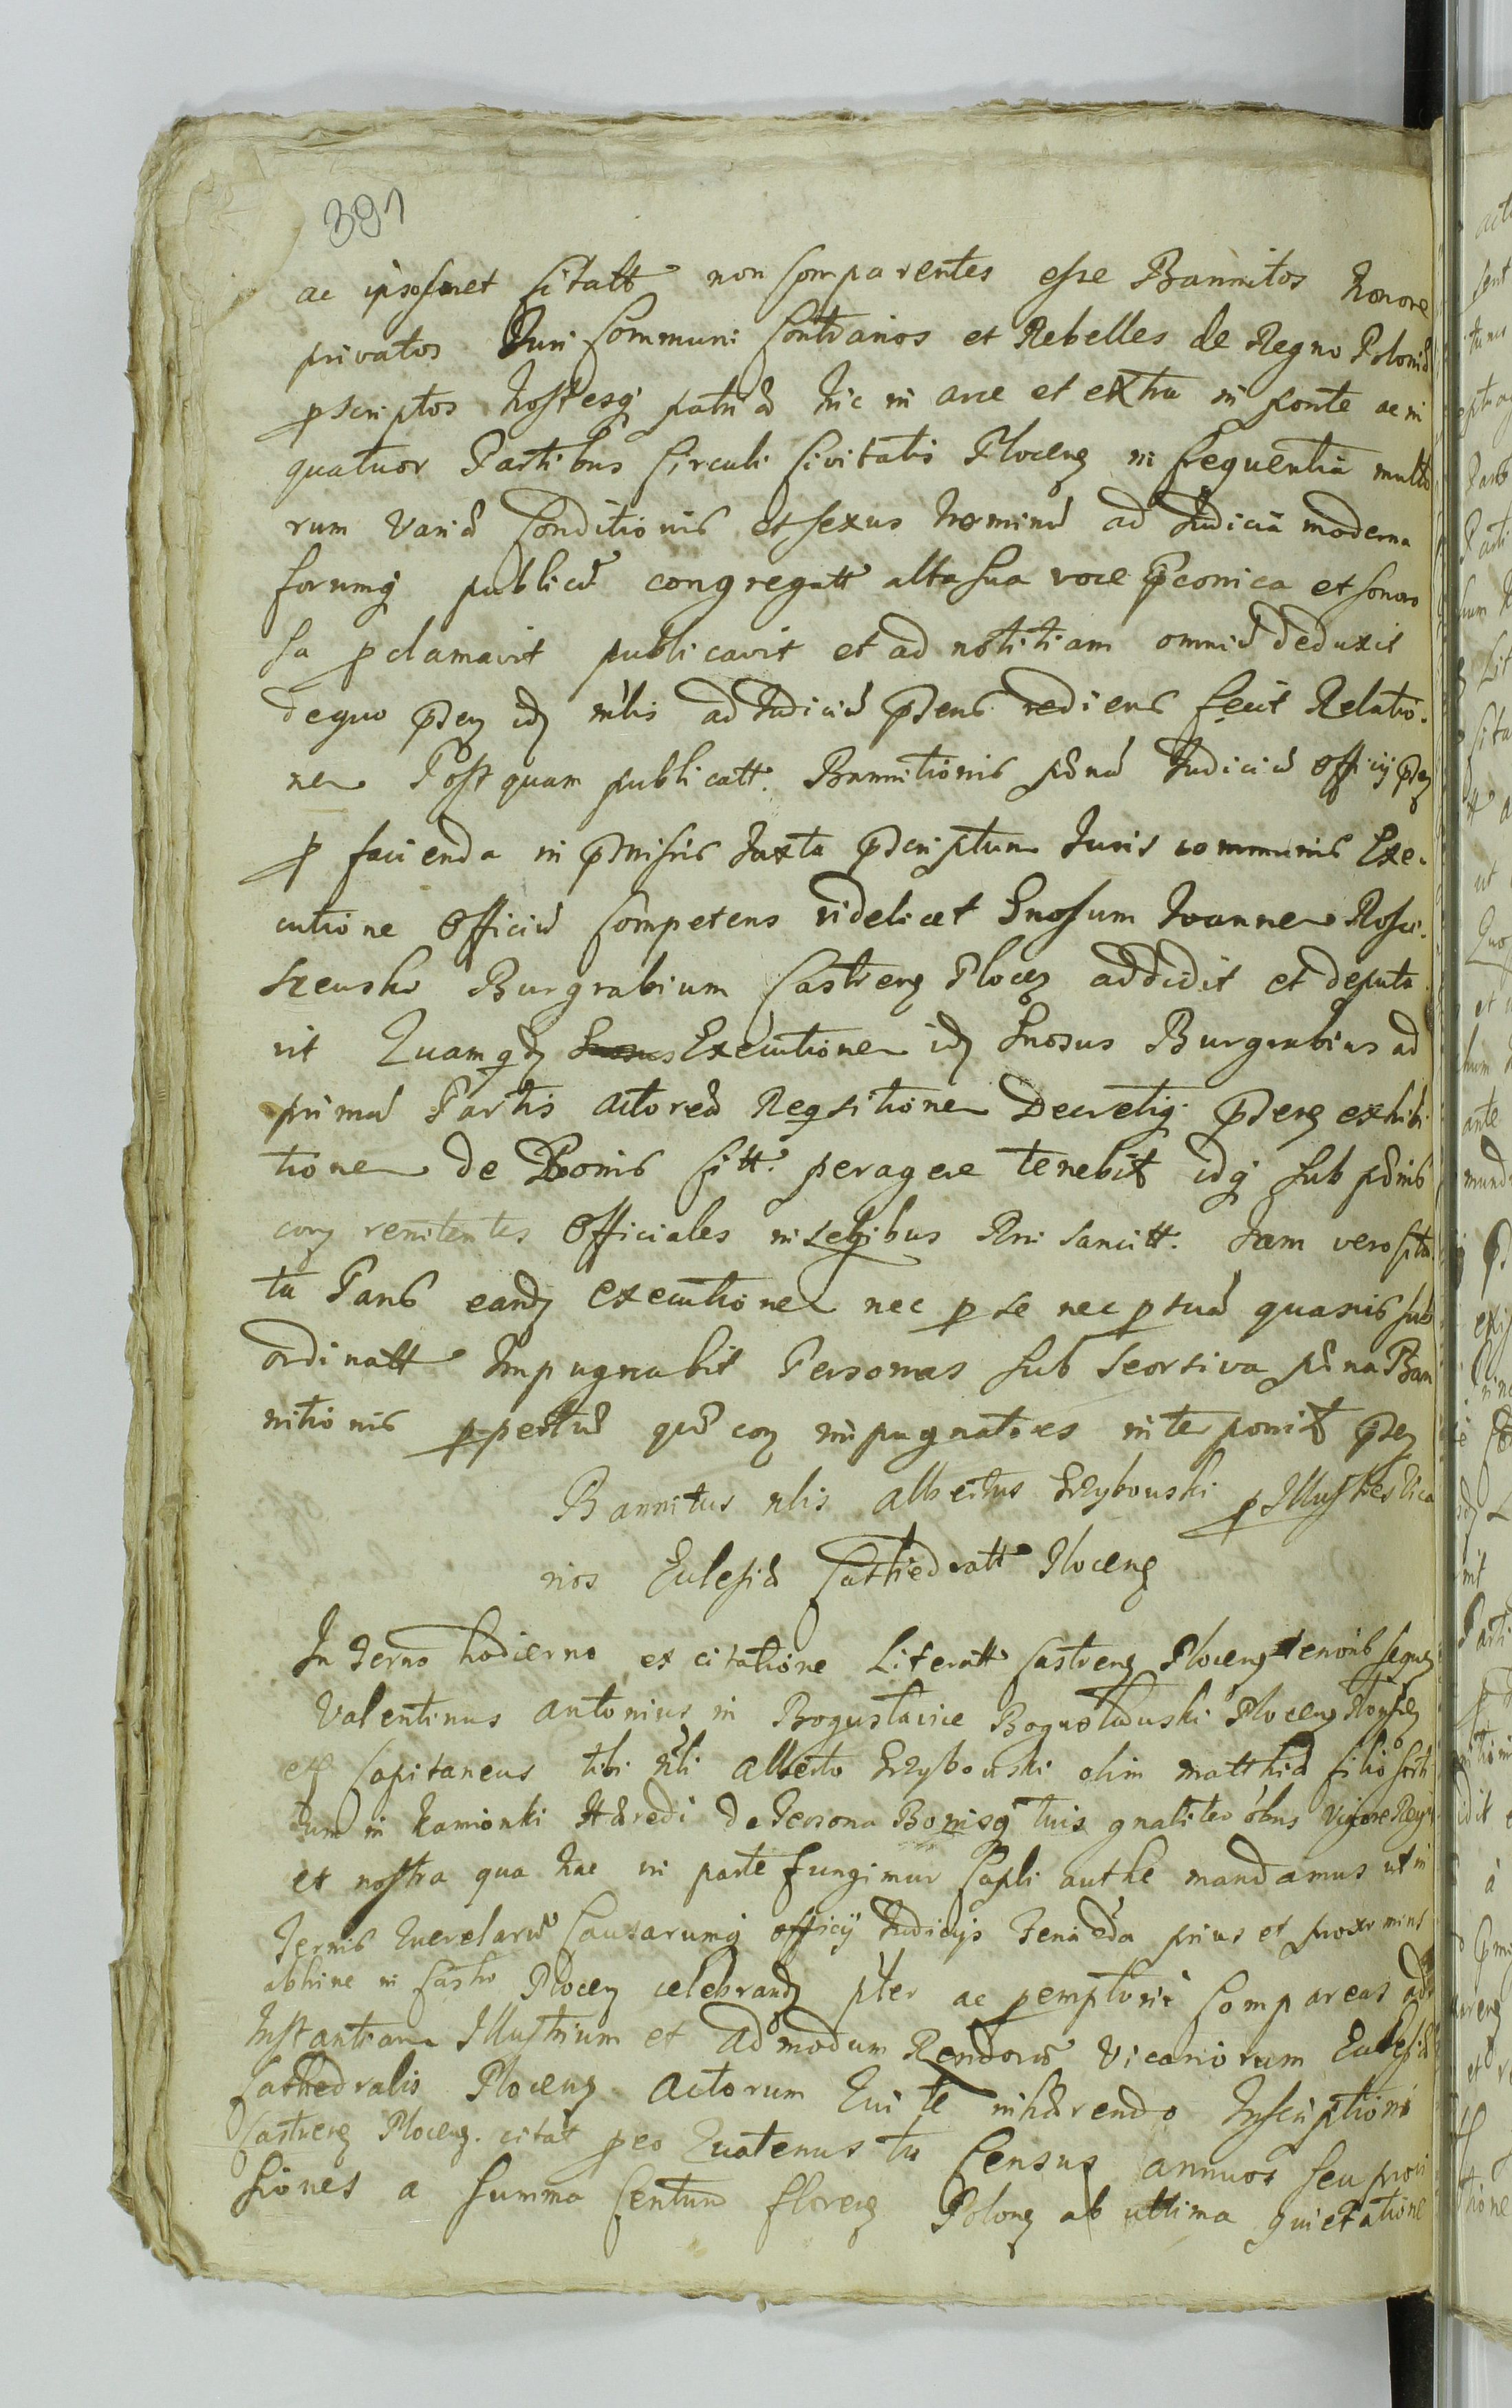 391
ac ipsosmet Citatt non Comparentes esse Bannitos honore
privatos Juri Communi Contrarios et Rebelles de Regno Poloniæ
pscriptos hostesq patriæ hic in arce et extra in ponte ac in
quatuor Partibus Circuli Civitatis Plocen in frequentia multo
rum variæ Conditionis et sexus hominū ad Judicia moderna
forumq publicū congregatt alta sua voce pconica et sonoro
sa pclamavit publicavit et ad notitiam omniū deduxit
dequo pden idem mlis ad Judiciū pdens rediens fecit Relatio
nem Postquam publicatt. Bannitionis pænā Judiciū Officij pden
p facienda in pmissis Juxta pscriptum Juris communis Exe
cutione Officiū Competens videlicet Gnosum Joannem Rosci
szewski Burgrabium Castren Plocen addidit et deputa
vit Quamqd Executionem idem Gnosus Burgrabius ad
primā Partis actoreæ Reqsitionem Decretiq pden exhibi
tionem de Bonis Citt. peragere tenebit idq sub pænis
con renitentes Officiales in Legibus Rni sancitt. Jam vero Cita
ta Pars eandem executionem nec p se nec p suas quasvis sub
ordinatt Impugnabit Personas sub seorsiva pæna Ban
nitionis ppetuæ quā con impugnatores interponit pden
Bannitus nlis Albertus Grzybowski p Illustres Vica
rios Ecclesiæ Cathedratt Plocen
In Termo hodierno ex citatione Literatt Castren Plocen tenoris sequen
Valentinus Antonius in Bogusławice Bogusławski Plocen
Capitaneus tibi Nli Alberto Grzybowski olim Matthiæ filio
in Kamionki Hæredi de Persona Bonisq tuis gnaliter obus Vigore Regia
et nostra qua hac in parte fungimur Capli authe mandamus ut in
Termis Querelarū Causarumq officij Judicijs Feria prius et proxime
abhinc in Castro Plocen celebrand pter ac pemptorie Compareas ad
Instantiam Illustrium et admodum Rendorū Vicariorum Ecclesiæ
Cathedralis Plocen. Actorum Qui te inhærendo Inscriptioni
Castren Plocen. citat p eo Quatenus tu Census annuos seu provi
siones a Summa Centum floren Polon ab ultima quietatione